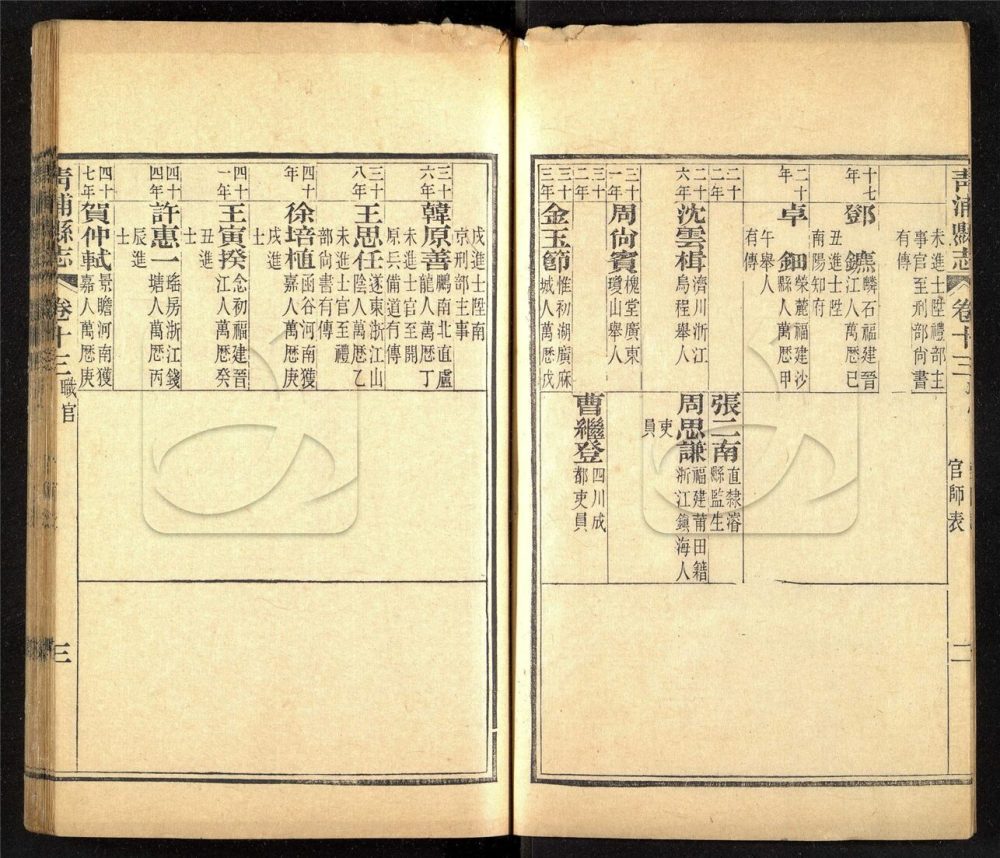 青浦縣志
卷十三
官師表
二
未進士陞禮部主
事官至刑部尚書
有傳
十七
年
鄧鑣
麟石福建晉
江人萬歷己
丑進士陞
南陽知府
二十
年
卓鈿
榮麓福建沙
縣人萬歷甲
午舉人
有傳
二十
二年
張二南
直隸濬
縣監生
二十
六年
沈雲楫
濟川浙江
烏程舉人
周思謙
福建莆田籍
浙江鎮海人
吏
員
三十
一年
周尚賓
槐堂廣東
瓊山舉人
三十
二年
曹繼登
四川成
都吏員
三十
三年
金玉節
惟初湖廣麻
城人萬歷戊
戌進士陞南
京刑部主事
三十
六年
韓原善
鵬南北直盧
龍人萬歷丁
未進士官至開
原兵備道有傳
三十
八年
王思任
遂東浙江山
陰人萬歷乙
未進士官至禮
部尚書有傳
四十
年
徐培植
函谷河南獲
嘉人萬歷庚
戌進
士
四十
一年
王寅揆
念初福建晉
江人萬歷癸
丑進
士
四十
四年
許惠一
瑤房浙江錢
塘人萬歷丙
辰進
士
四十
七年
賀仲軾
景瞻河南獲
嘉人萬歷庚
青浦縣志
卷十三
職官
三